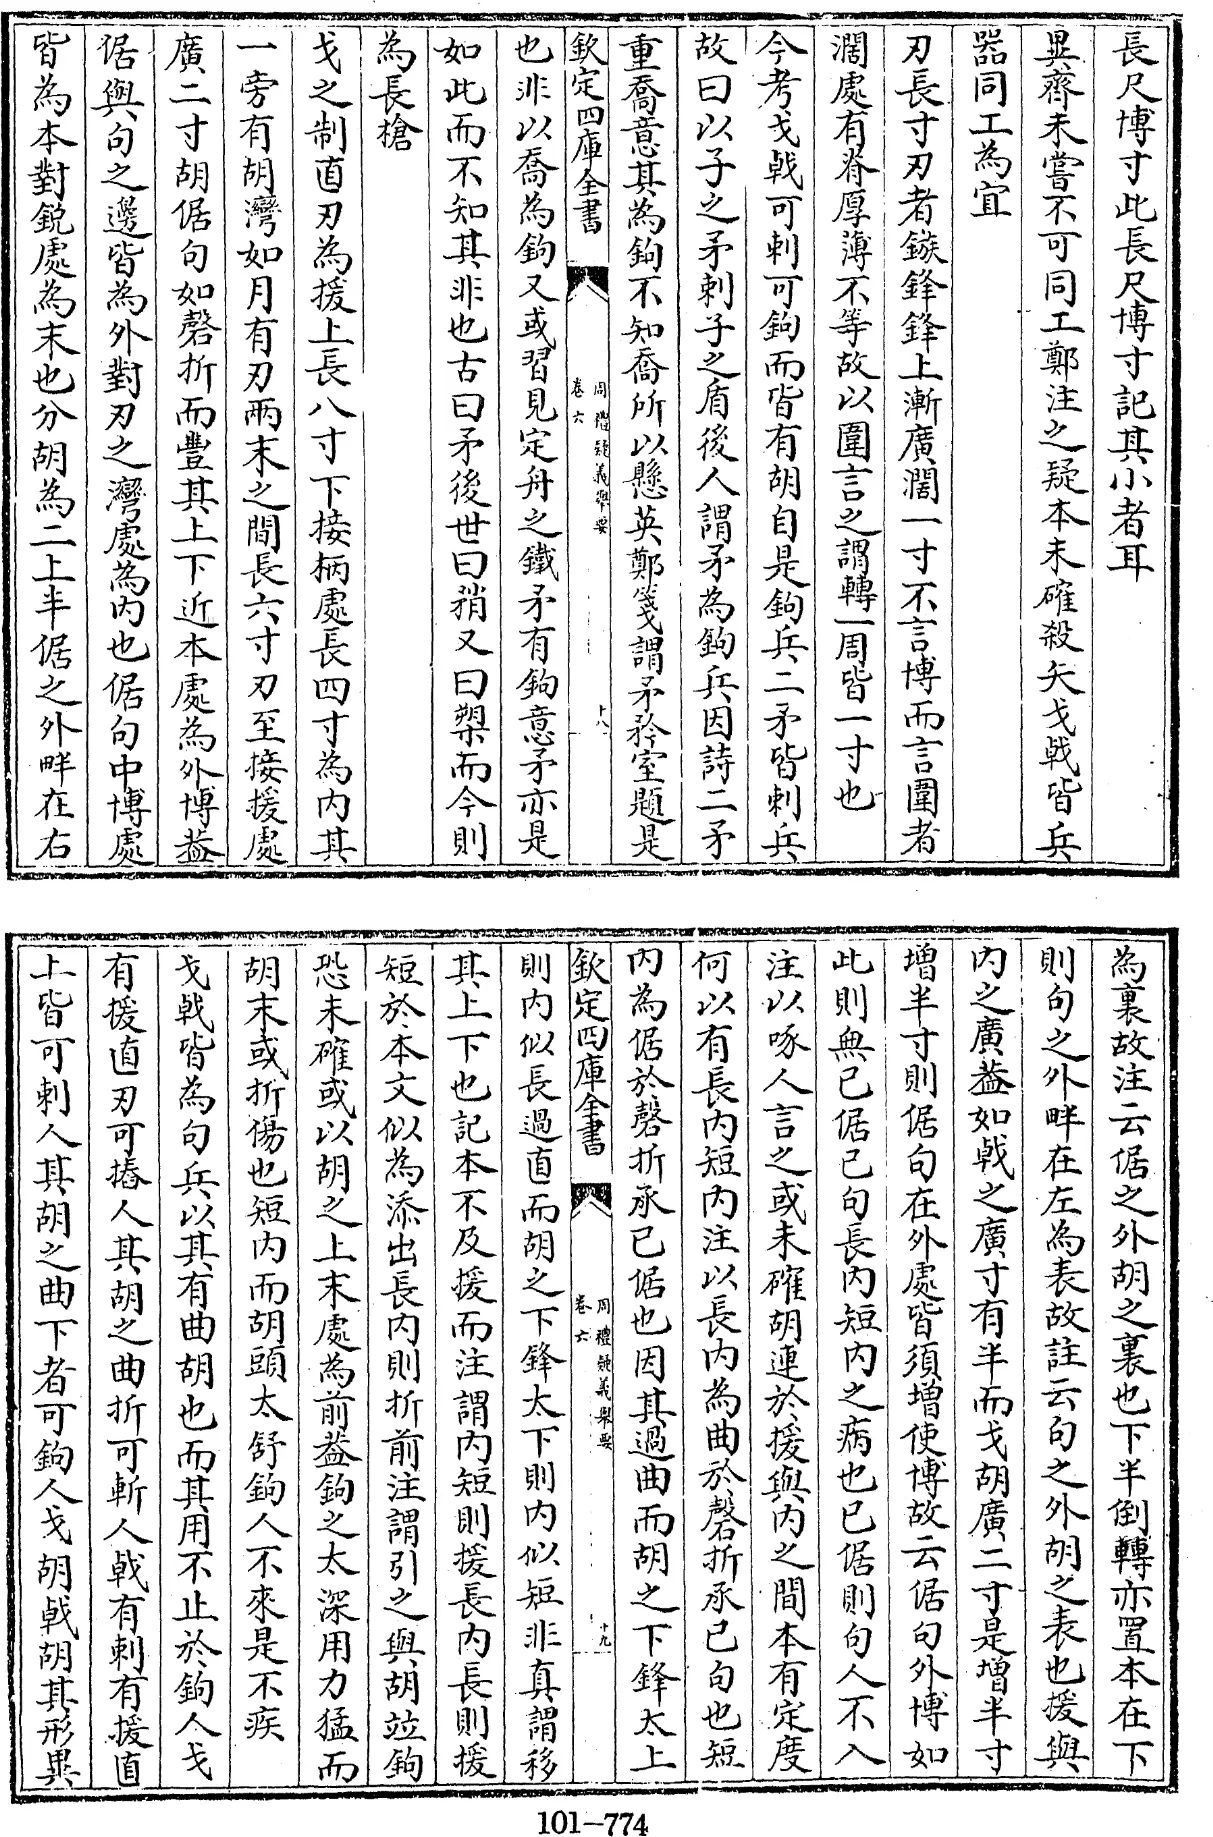 長尺博寸此長尺博寸記其小者耳
異齊未嘗不可同工鄭注之疑本未確殺矢戈戟皆兵
器同工為宜
刃長寸刃者鏃鋒鋒上漸廣濶一寸不言博而言圍者
濶處有脊厚薄不等故以圍言之謂轉一周皆一寸也
今考戈戟可刺可鉤而皆有胡自是鉤兵二矛皆刺兵
故曰以子之矛刺子之盾後人謂矛為鉤兵因詩二矛
重喬意其為鉤不知喬所以懸英鄭箋謂矛矜室題是
欽定四庫全書
周禮疑義舉要
卷六
十八
也非以喬為鉤又或習見定舟之鐵矛有鉤意矛亦是
如此而不知其非也古曰矛後世曰矟又曰槊而今則
為長槍
戈之制直刃為援上長八寸下接柄處長四寸為内其
一旁有胡灣如月有刃兩末之間長六寸刃至接援處
廣二寸胡倨句如磬折而豐其上下近本處為外博葢
倨與句之邊皆為外對刃之灣處為内也倨句中博處
皆為本對鋭處為末也分胡為二上半倨之外畔在右
為裏故注云倨之外胡之裏也下半倒轉亦置本在下
則句之外畔在左為表故註云句之外胡之表也援與
内之廣葢如戟之廣寸有半而戈胡廣二寸是增半寸
增半寸則倨句在外處皆須增使博故云倨句外博如
此則無已倨已句長内短内之病也已倨則句人不入
注以啄人言之或未確胡連於援與内之間本有定度
何以有長内短内注以長内為曲於磬折承已句也短
内為倨於磬折承已倨也因其過曲而胡之下鋒太上
欽定四庫全書
周禮疑義舉要
卷六
十九
則内似長過直而胡之下鋒太下則内似短非真謂移
其上下也記本不及援而注謂内短則援長内長則援
短於本文似為添出長内則折前注謂引之與胡竝鉤
恐未確或以胡之上末處為前葢鉤之太深用力猛而
胡末或折傷也短内而胡頭太舒鉤人不來是不疾
戈戟皆為句兵以其有曲胡也而其用不止於鉤人戈
有援直刃可摏人其胡之曲折可斬人戟有刺有援直
上皆可刺人其胡之曲下者可鉤人戈胡戟胡其形異
101-774